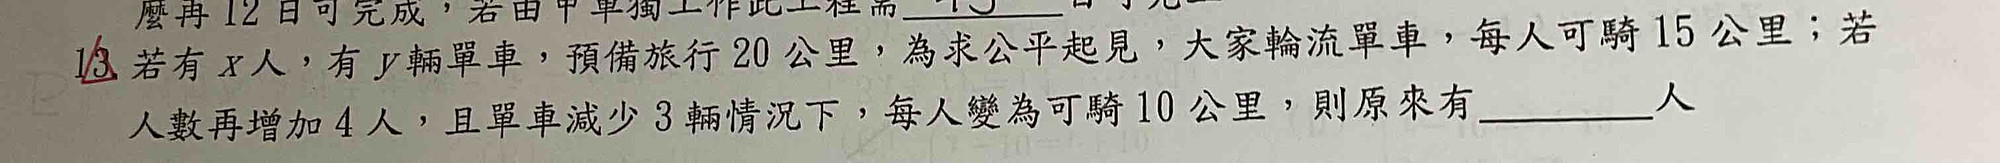 麼再 12 日可完成，若由甲單獨工作此工程需
13. 若有 x 人，有 y 輛單車，預備旅行 20 公里，為求公平起見，大家輪流單車，每人可騎 15 公里；若
人數再增加 4 人，且單車減少 3 輛情況下，每人變為可騎 10 公里，則原來有________人